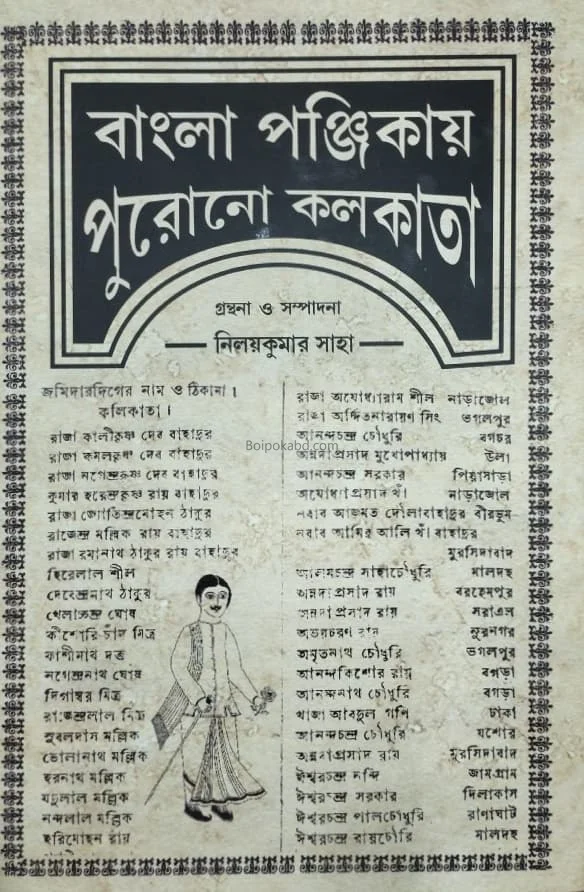 বাংলা পঞ্জিকায়
পুরোনো কলকাতা
গ্রন্থনা ও সম্পাদনা
নিলয়কুমার সাহা
জমিদারদিগের নাম ও ঠিকানা।
কলিকাতা।
রাজা কালীকৃষ্ণ দেব বাহাদুর
রাজা কমলকৃষ্ণ দেব বাহাদুর
রাজা নগেন্দ্রকৃষ্ণ দেব বাহাদুর
কুমার হরেন্দ্রকৃষ্ণ রায় বাহাদুর
রাজা জ্যোতিন্দ্রমোহন ঠাকুর
রাজেন্দ্র মল্লিক রায় বাহাদুর
রাজা রমানাথ ঠাকুর রায় বাহাদুর
হিরেলাল শীল
দেবেন্দ্রনাথ ঠাকুর
খেলাতচন্দ্র ঘোষ
কীশোরিচাঁদ মিত্র
কাশীনাথ দত্ত
নগেন্দ্রনাথ ঘোষ
দিগাম্বর মিত্র
রাজেন্দ্রলাল মিত্র
সুবলদাস মল্লিক
ভোলানাথ মল্লিক
হরনাথ মল্লিক
যদুলাল মল্লিক
নন্দলাল মল্লিক
হরিমোহন রায়
রাজা অযোধ্যারাম শীল নাড়াজোল
রাজা অদ্দিতনারায়ণ সিং ভগলপুর
আনন্দচন্দ্র চৌধুরি বগচর
অন্নদাপ্রসাদ মুখোপাধ্যায় উলা
আনন্দচন্দ্র সরকার পিয়াসাড়া
অযোধ্যাপ্রসাদ খাঁ নাড়াজোল
নবাব আজমত দৌলাবাহাদুর বীরভুম
নবাব আমির আলি খাঁ বাহাদুর
মুরসিদাবাদ
সাহাচৌধুরি মালদহ
অন্নদাপ্রসাদ রায় বরহেমপুর
অন্নদাপ্রসাদ রায় সরাএল
অভয়চরণ রায় নুরনগর
অমৃতনাথ চৌধুরি ভগলপুর
আনন্দকিশোর রায় বগড়া
আনন্দনাথ চৌধুরি বগড়া
খাজা আবদুল গণি ঢাকা
আনন্দচন্দ্র চৌধুরি যশোর
অন্নদাপ্রসাদ রায় মুরসিদাবাদ
ঈশ্বরচন্দ্র নন্দি জামগ্রাম
ঈশ্বরচন্দ্র সরকার দিলাকাস
ঈশ্বরচন্দ্র পালচৌধুরি রাণাঘাট
ঈশ্বরচন্দ্র রায়চৌরি মালদহ
Boipokabd.com